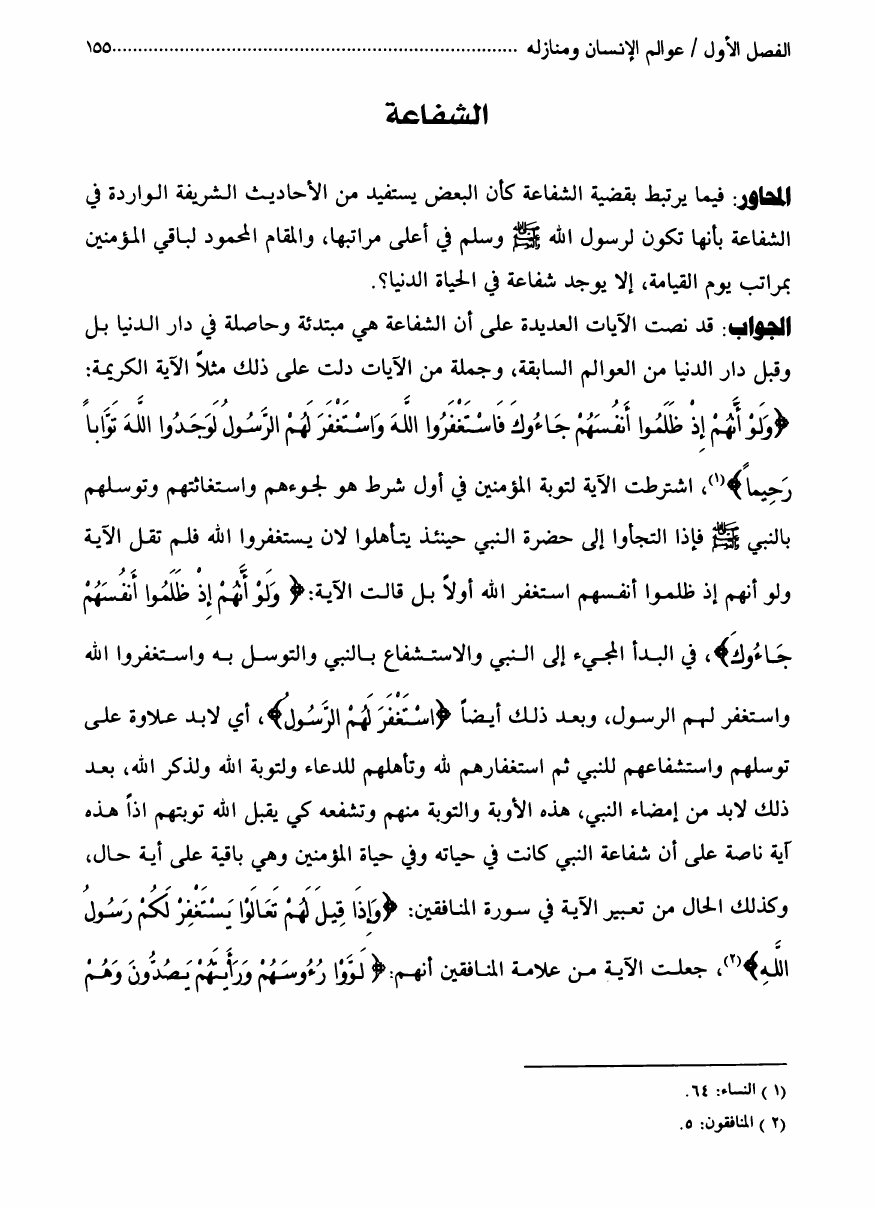 الفصل الأول / عوالم الإنسان ومنازله ........................................................ ١٥٥
الشفاعة
المحاور: فيما يرتبط بقضية الشفاعة كأن البعض يستفيد من الأحاديث الشريفة الواردة في
الشفاعة بأنها تكون لرسول الله ﷺ وسلم في أعلى مراتبها، والمقام المحمود لباقي المؤمنين
بمراتب يوم القيامة، إلا يوجد شفاعة في الحياة الدنيا؟.
الجواب: قد نصت الآيات العديدة على أن الشفاعة هي مبتدئة وحاصلة في دار الدنيا بل
وقبل دار الدنيا من العوالم السابقة، وجملة من الآيات دلت على ذلك مثلاً الآية الكريمة:
﴿وَلَوْ أَنَّهُمْ إِذْ ظَلَمُوا أَنفُسَهُمْ جَاءُوكَ فَاسْتَغْفَرُوا اللَّهَ وَاسْتَغْفَرَ لَهُمْ الرَّسُولُ لَوَجَدُوا اللَّهَ تَوَّاباً
رَحِيماً﴾(١)، اشترطت الآية لتوبة المؤمنين في أول شرط هو لجوءهم واستغاثتهم وتوسلهم
بالنبي ﷺ فإذا التجأوا إلى حضرة النبي حينئذ يتأهلوا لان يستغفروا الله فلم تقل الآية
ولو أنهم إذ ظلموا أنفسهم استغفر الله أولاً بل قالت الآية: ﴿ وَلَوْ أَنَّهُمْ إِذْ ظَلَمُوا أَنفُسَهُمْ
جَاءُوكَ﴾، في البدأ المجيء إلى النبي والاستشفاع بالنبي والتوسل به واستغفروا الله
واستغفر لهم الرسول، وبعد ذلك أيضاً ﴿اسْتَغْفَرَ لَهُمْ الرَّسُولُ﴾، أي لابد علاوة على
توسلهم واستشفاعهم للنبي ثم استغفارهم لله وتأهلهم للدعاء ولتوبة الله ولذكر الله، بعد
ذلك لابد من إمضاء النبي، هذه الأوبة والتوبة منهم وتشفعه كي يقبل الله توبتهم اذاً هذه
آية ناصة على أن شفاعة النبي كانت في حياته وفي حياة المؤمنين وهي باقية على أية حال،
وكذلك الحال من تعبير الآية في سورة المنافقين: ﴿وَإِذَا قِيلَ لَهُمْ تَعَالَوْا يَسْتَغْفِرْ لَكُمْ رَسُولُ
اللَّهِ﴾(٢)، جعلت الآية من علامة المنافقين أنهم: ﴿ لَوَّوْا رُءُوسَهُمْ وَرَأَيْتَهُمْ يَصُدُّونَ وَهُمْ
(١) النساء: ٦٤.
(٢) المنافقون: ٥.